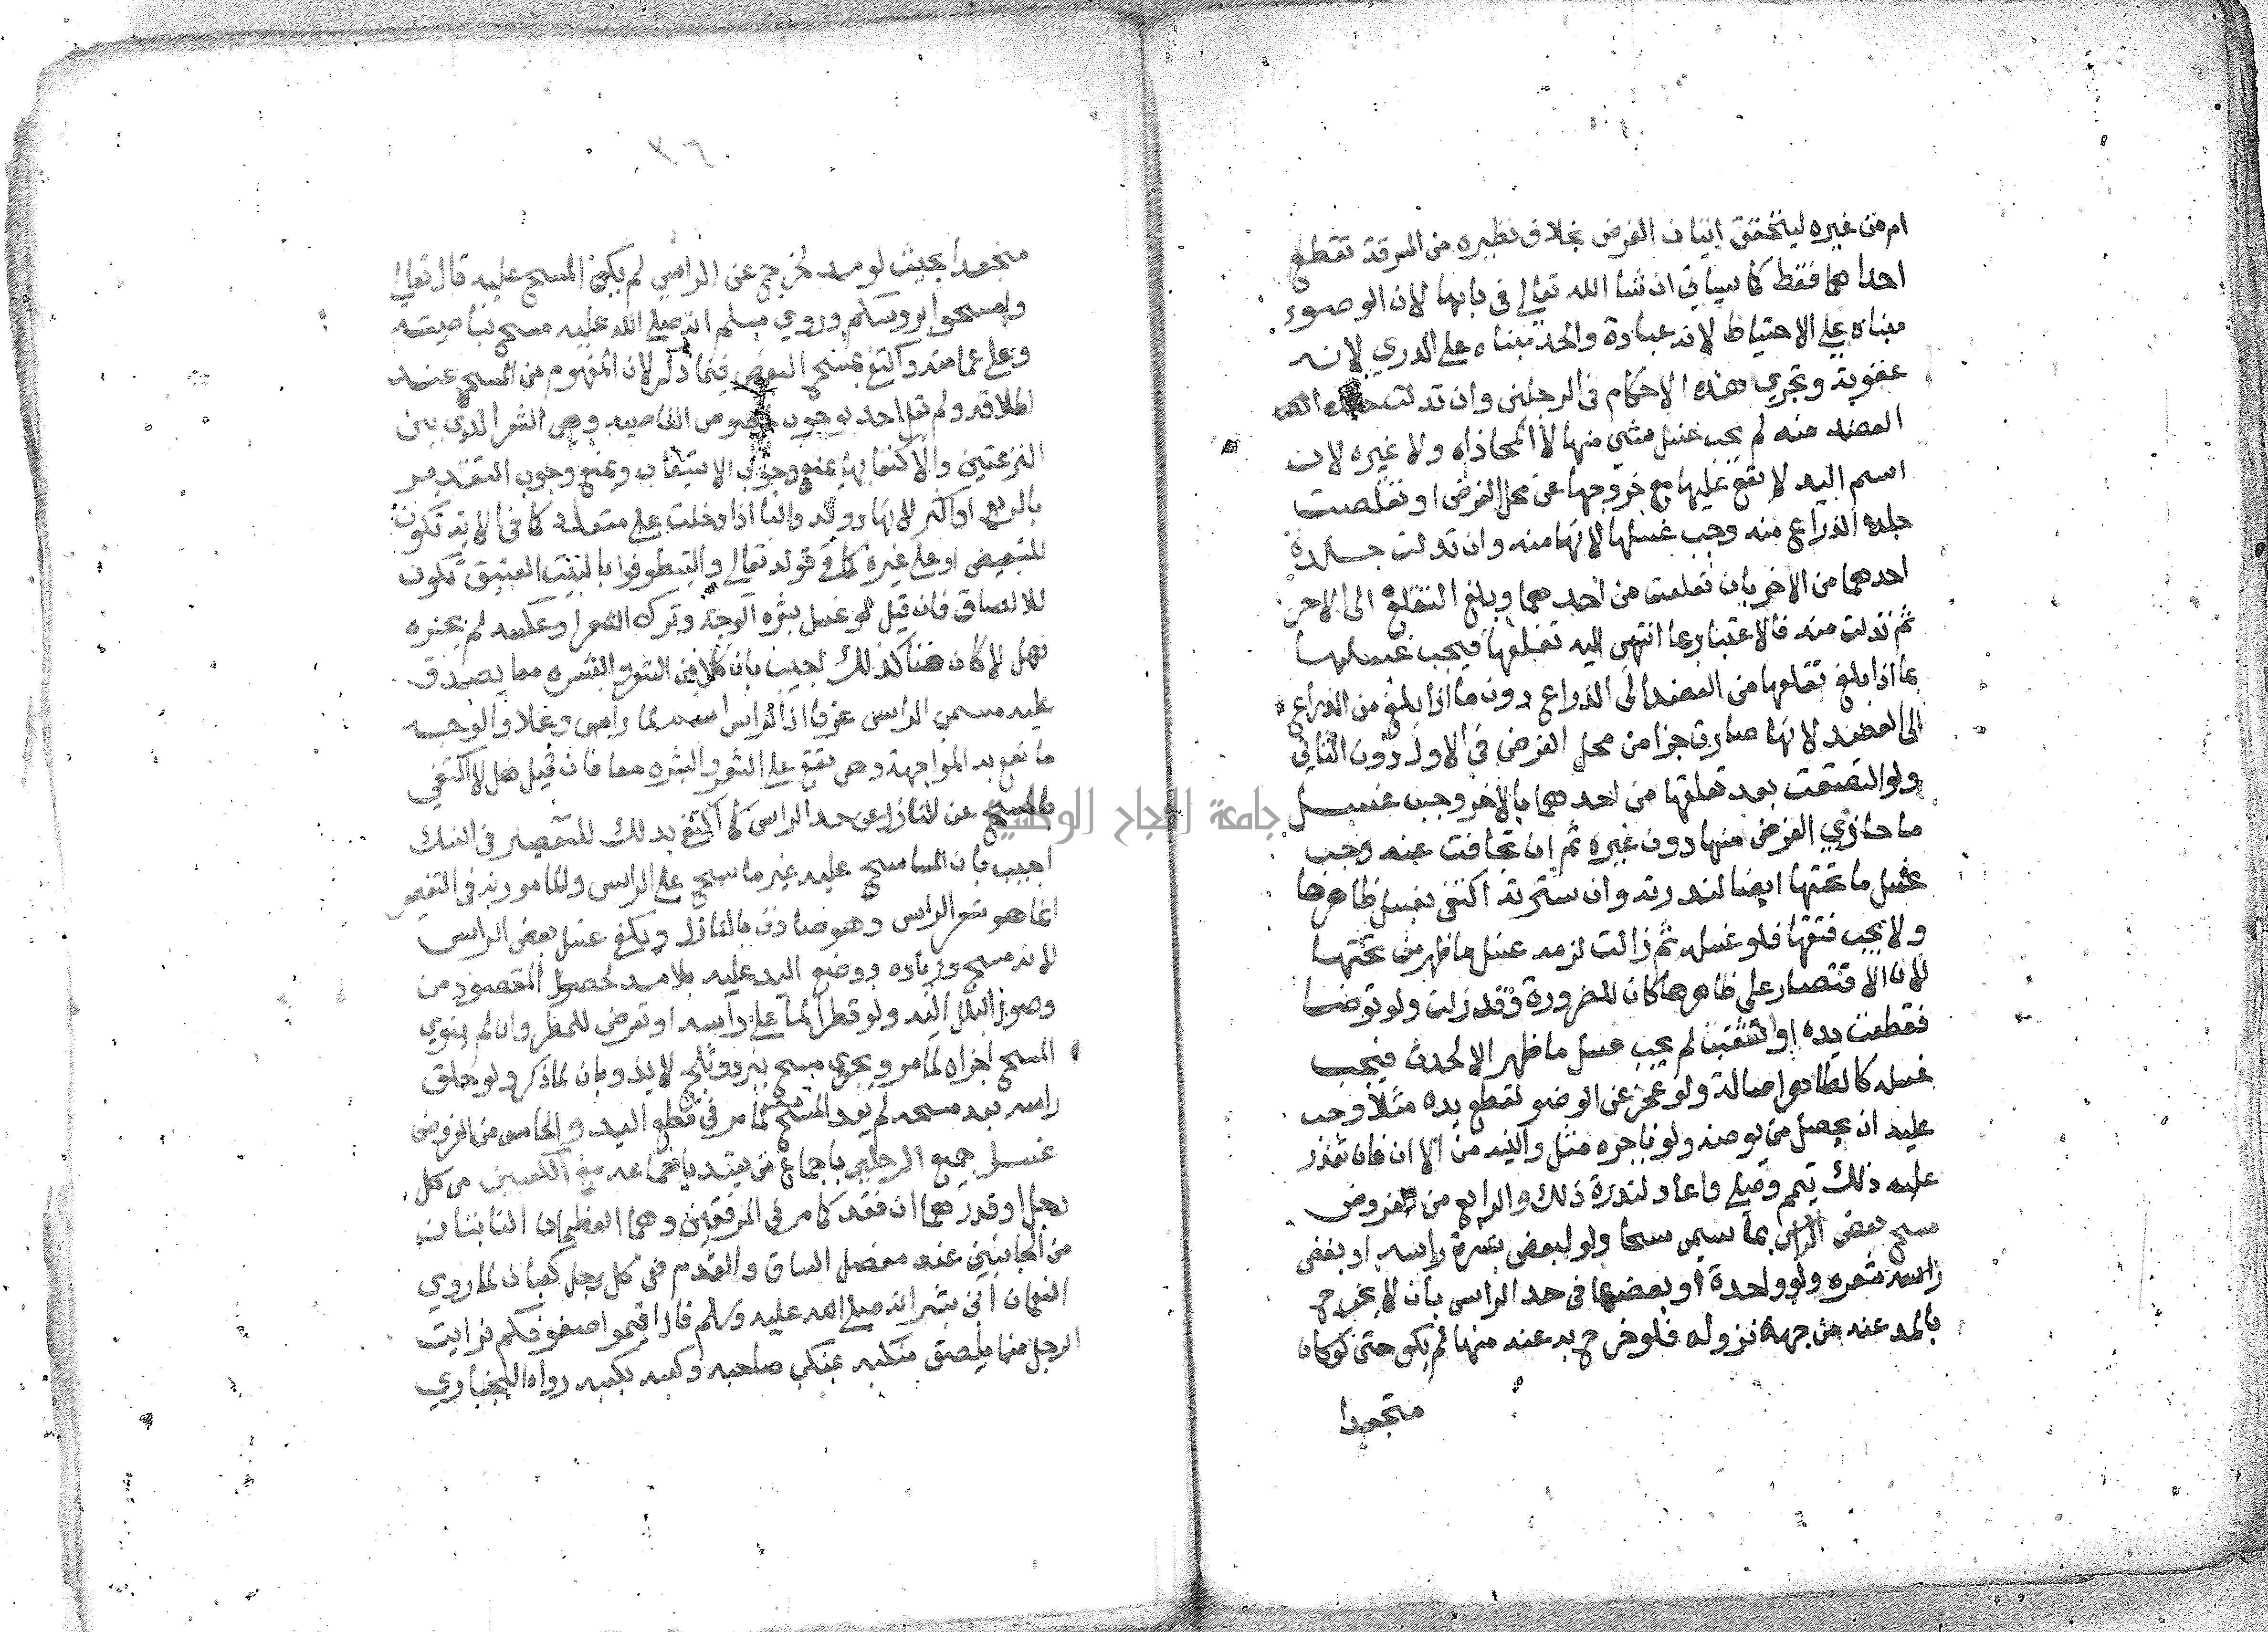 ام من غيره ليتحقق اتيان الفرض بخلاف نظيره من السرقة تقطع
احداهما فقط كما سياتي ان شا الله تعالى في بابها لان الوضوء
مبناه على الاحتياط لانه عبادة والحد مبناه على الدري لانه
عقوبة وتجري هذه الاحكام في الرجلين وان تدلت جلده
العضد منه لم يجب غسل شي منها لا المحاذاه ولا غيره لان
اسم اليد لا تقع عليها مع خروجها عن محل الفرض او تقلصت
جلدة الذراع منه وجب غسلها لانها منه وان تدلت جلدة
احدهما من الاخر بان تقلعت من احدهما وبلغ التقلع الى الاخر
ثم تدلت منه فالاعتبار بما انتهى اليه تقلعها فيجب غسلها
بما اذا بلغ تقلعها من العضد الى الذراع دون ما اذا بلغ من الذراع
الى العضد لانها صارت جزا من محل الفرض في الاول دون الثاني
ولو التصقت بعد تقلعها من احدهما بالاخر وجب غسل
ما حاذي الفرض منها دون غيره ثم ان تجافت عنه وجب
غسل ما تحتها ايضا لندرته وان سترته اكتفى بغسل ظاهرها
ولا يجب فتقها فلو غسله ثم زالت لزمه غسل ما ظهر من تحتها
لان الاقتصار على ظاهرها كان للضرورة وقد زالت ولو توضا
فقطعت يده او تثقبت لم يجب غسل ما ظهر الا لحدث فيجب
غسله كالظاهر اصالة ولو عجز عن الوضو لقطع يده مثلا وجب
عليه ان يحصل من يوضئه ولو باجره مثل والنيه من الاذن فان تعذر
عليه ذلك تيمم وصلي واعاد لندرة ذلك والرابع من الفروض
مسح بعض الراس بما يسمى مسحا ولو لبعض بشرة راسه او بعض
راسه شعره ولو واحدة او بعضها في حد الراس بان لا يخرج
بالمد عنه من جهة نزوله فلو خرج به عنه منها لم يكف حتى لو كان
متجعدا
٣٦
متجعدا بحيث لو مد لخرج عن الراس لم يكف المسح عليه قال تعالى
وامسحوا بروسكم وروي مسلم انه صلى الله عليه مسح بناصيته
وعلى عمامته واكتفي بمسح البعض فيما ذكر لان المفهوم من المسح عند
اطلاقه ولم يقل احد بوجوب خصوص الناصيه وهي الشعر الذي بين
النزعتين والاكتفا بها يمنع وجوب الاستيعاب ويمنع وجوب التقدير
بالربع او اكثر لانها دونه والبا اذا دخلت على متعدد كما في الاية تكون
للتبعيض او على غيره كما في قوله تعالى وليطوفوا بالبيت العتيق تكون
للالصاق فان قيل لو غسل بشره الوجه وترك الشعر او عكسه لم يجزه
فهل لا كان هنا كذلك اجيب بان كلا من الشعر والبشره معا يصدق
عليه مسمى الراس عرفا اذ الراس اسم لما راس وعلا والوجه
ما تقع به المواجهة وهي تقع على الشعر والبشره معا فان قيل هل لا اكتفي
بالمسح عن النازل عن حد الراس كما اكتفي بذلك للتقصير في النسك
اجيب بان الماسح عليه غير ماسح على الراس والمامور به في التقصير
انما هو شعر الراس وهو صادق بالنازل ويكفي غسل بعض الراس
لانه مسح وزياده ووضع اليد عليه بلا مد لحصول المقصود من
وصول البلل اليه ولو قطر الما على راسه او تعرض للمطر وان لم ينوي
المسح اجزاه لما مر ويجزي مسح ببرد وثلج لا يذوبان لما ذكر ولو حلق
راسه بعد مسحه لم يعد المسح كما مر في قطع اليد والخامس من الفروض
غسل جميع الرجلين باجماع من يعتد باجماعه مع الكعبين من كل
رجل او قدرهما ان فقد كما مر في المرفقين وهما العظمان الناتئان
من الجانبين عند مفصل الساق والقدم ففي كل رجل كعبان لما روي
النعمان ابن بشر انه صلى الله عليه وسلم قال اقيموا صفوفكم فرايت
الرجل منا يلصق منكبه بمنكب صاحبه وكعبه بكعبه رواه البخاري
جامعة النجاح الوطنية